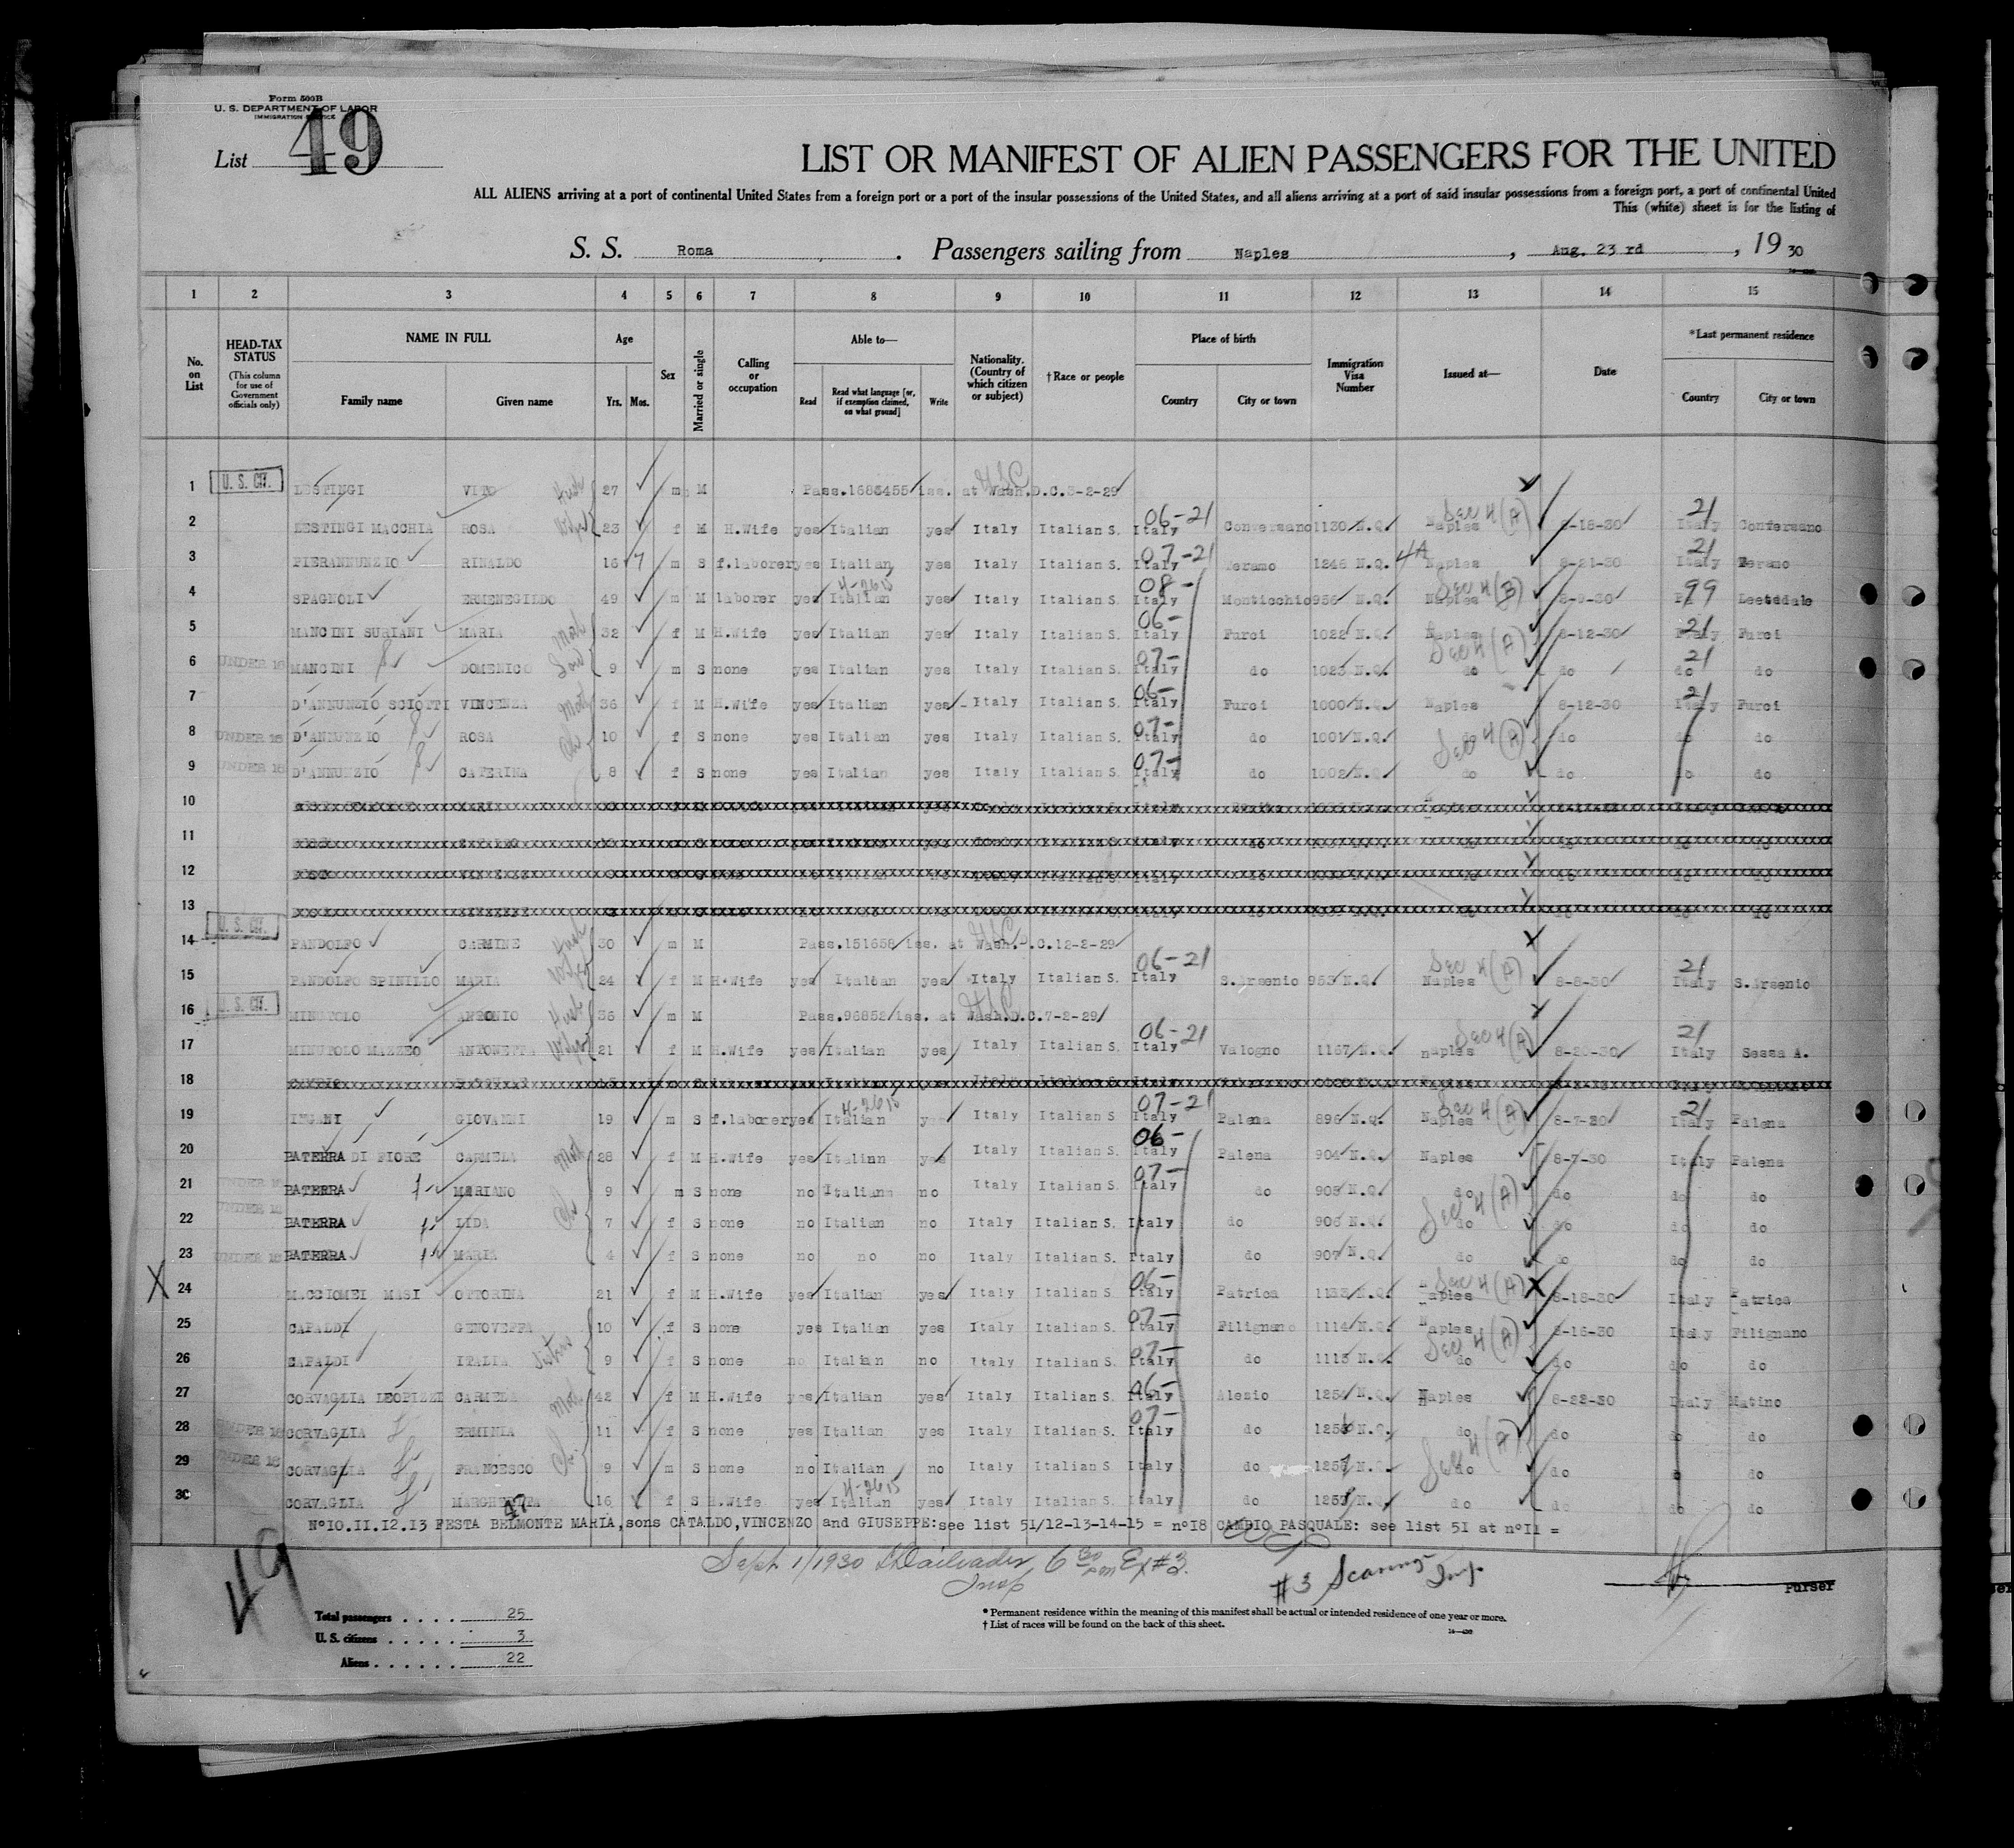 Form 500B
U. S. DEPARTMENT OF LABOR
IMMIGRATION SERVICE
List 49
LIST OR MANIFEST OF ALIEN PASSENGERS FOR THE UNITED
ALL ALIENS arriving at a port of continental United States from a foreign port or a port of the insular possessions of the United States, and all aliens arriving at a port of said insular possessions from a foreign port, a port of continental United
This (white) sheet is for the listing of
S. S. Roma . Passengers sailing from Naples , Aug. 23 rd , 19 30
1 2 3 4 5 6 7 8 9 10 11 12 13 14 15
No. on List
HEAD-TAX STATUS (This column for use of Government officials only)
NAME IN FULL Family name Given name
Age Yrs. Mos.
Sex
Married or single
Calling or occupation
Able to— Read Read what language [or, if exemption claimed, on what ground] Write
Nationality. (Country of which citizen or subject)
†Race or people
Place of birth Country City or town
Immigration Visa Number
Issued at—
Date
*Last permanent residence Country City or town
1 U. S. CIT. LESTINGI VITO Husb 27 m M Pass.1683455 iss. at Wash.D.C.3-2-29
2 LESTINGI MACCHIA ROSA Wife 23 f M H.Wife yes Italian yes Italy Italian S. 06-21 Italy Conversano 1130 N.Q. Sec 4 (A) Naples 8-18-30 21 Italy Confersano
3 PIERANNUNZIO RINALDO 16 7 m S f.laborer yes Italian yes Italy Italian S. 07-21 Italy Teramo 1246 N.Q. 4A Naples 8-21-30 21 Italy Teramo
4 SPAGNOLI ERMENEGILDO 49 m M laborer yes Italian yes Italy Italian S. 08- Italy Monticchio 956 N.Q. Sec 4 (B) Naples 8-9-30 99 Pa Leetsdale
5 MANCINI SURIANI MARIA 32 f M H.Wife yes Italian yes Italy Italian S. 06- Italy Furci 1022 N.Q. Naples 8-12-30 21 Italy Furci
6 UNDER 16 MANCINI DOMENICO Son 9 m S none yes Italian yes Italy Italian S. 07- Italy do 1023 N.Q. Sec 4 (A) do do 21 do do
7 D'ANNUNZIO SCIOTTI VINCENZA 36 f M H.Wife yes Italian yes Italy Italian S. 06- Italy Furci 1000 N.Q. Naples 8-12-30 21 Italy Furci
8 UNDER 16 D'ANNUNZIO ROSA 10 f S none yes Italian yes Italy Italian S. 07- Italy do 1001 N.Q. Sec 4 (A) do do do do
9 UNDER 16 D'ANNUNZIO CATERINA 8 f S none yes Italian yes Italy Italian S. 07- Italy do 1002 N.Q. do do do do
10
11
12
13
14 U. S. CIT. PANDOLFO CARMINE Husb 30 m M Pass.151658 iss. at Wash.D.C.12-2-29
15 PANDOLFO SPINILLO MARIA Wife 24 f M H.Wife yes Italian yes Italy Italian S. 06-21 Italy S.Arsenio 953 N.Q. Sec 4 (A) Naples 8-8-30 21 Italy S.Arsenio
16 U. S. CIT. MINUTOLO ANTONIO Husb 36 m M Pass.96852 iss. at Wash.D.C.7-2-29
17 MINUTOLO MAZZEO ANTONETTA Wife 21 f M H.Wife yes Italian yes Italy Italian S. 06-21 Italy Valogno 1167 N.Q. Sec 4 (A) naples 8-20-30 21 Italy Sessa A.
18
19 INGANI GIOVANNI 19 m S f.laborer yes Italian yes Italy Italian S 07-21 Italy Palena 896 N.Q. Sec 4 (A) Naples 8-7-30 21 Italy Palena
20 PATERRA DI FIORE CARMELA 28 f M H.Wife yes Italinn yes Italy Italian S. 06- Italy Palena 904 N.Q. Naples 8-7-30 Italy Palena
21 PATERRA MARIANO 9 m S none no Italiann no Italy Italian S. 07- Italy do 905 N.Q. Sec 4 (A) do do do do
22 PATERRA LIDA 7 f S none no Italian no Italy Italian S. Italy do 906 N.Q. do do do do
23 UNDER 16 PATERRA MARIA 4 f S none no no no Italy Italian S. Italy do 907 N.Q. do do do do
X 24 MACCIOMEI MASI OTTORINA 21 f M H.Wife yes Italian yes Italy Italian S. 06- Italy Patrica 1133 N.Q. Sec 4 (A) Naples 8-18-30 Italy Patrica
25 CAPALDI GENOVEFFA 10 f S none yes Italian yes Italy Italian S. 07- Italy Filignano 1114 N.Q. Naples 8-16-30 Italy Filignano
26 CAPALDI ITALIA Sisters 9 f S none no Italian no Italy Italian S. 07- Italy do 1115 N.Q. Sec 4 (A) do do do do
27 CORVAGLIA LEOPIZZI CARMELA 42 f M H.Wife yes Italian yes Italy Italian S. 06- Italy Alezio 1254 N.Q. Naples 8-22-30 Italy Matino
28 UNDER 16 CORVAGLIA ERMINIA 11 f S none yes Italian yes Italy Italian S. 07- Italy do 1256 N.Q. do do do do
29 UNDER 16 CORVAGLIA FRANCESCO 9 m S none no Italian no Italy Italian S. Italy do 1257 N.Q. Sec 4 (A) do do do
30 CORVAGLIA MARGHERITA 16 f S H.Wife yes Italian yes Italy Italian S. Italy do N.Q. do do do do
N°10.11.12.13 FESTA BELMONTE MARIA,sons CATALDO,VINCENZO and GIUSEPPE:see list 51/12-13-14-15 = n°18 CAMBIO PASQUALE: see list 51 at n°11 =
49
Sept 1/1930 6 30 pm Ex #3
Insp
#3 Insp.
Purser
Total passengers . . . . 25
U. S. citizens . . . . . 3
Aliens . . . . . . 22
* Permanent residence within the meaning of this manifest shall be actual or intended residence of one year or more.
† List of races will be found on the back of this sheet.